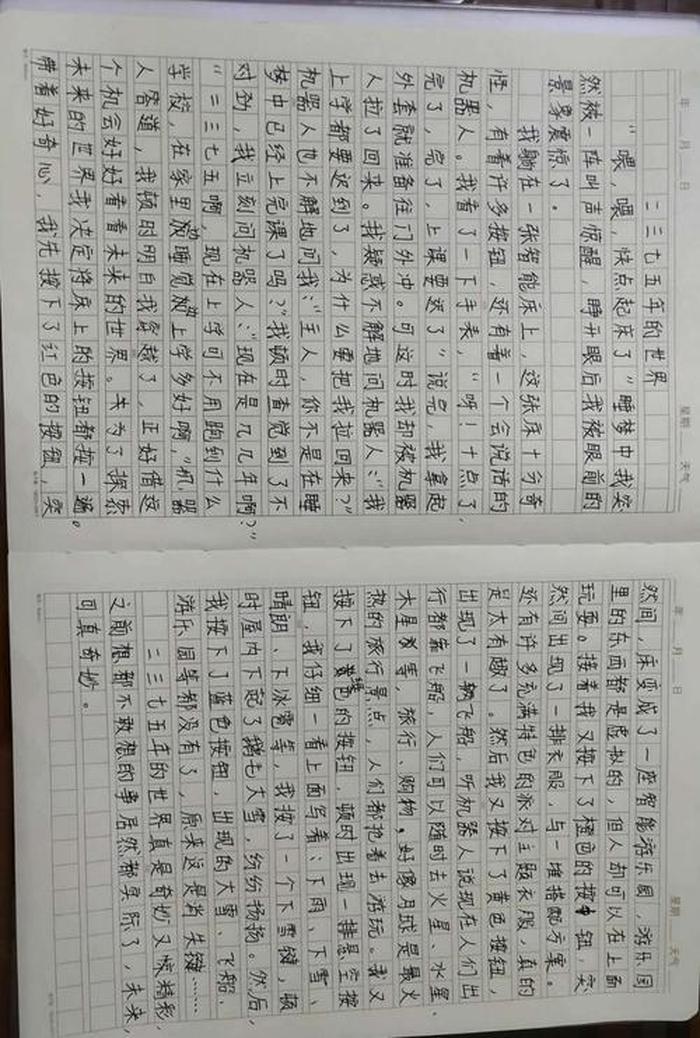 年 月 日 星期 天气
二三七五年的世界
“喂，喂，快点起床了”睡梦中我突
然被一阵叫声惊醒，睁开眼后我被眼前的
景象震惊了。
我躺在一张智能床上，这张床十分奇
怪，有着许多按钮，还有着一个会说话的
机器人。我看了一下手表，“呀！十点了，
完了，完了，上课要迟了”说完，我拿起
外套就准备往门外冲。可这时我却被机器
人拉了回来。我疑惑不解地问机器人：“我
上学都要迟到了，为什么要把我拉回来？”
机器人也不解地问我：“主人，你不是在睡
梦中已经上完课了吗？”我顿时查觉到了不
对劲，我立刻问机器人：“现在是几几年啊？”
“二三七五啊，现在上学可不用跑到什么
学校，在家里边睡觉边上学多好啊，”机器
人答道，我顿时明白我穿越了，正好借这
个机会好好看看未来的世界。为了探索
未来的世界我决定将床上的按钮都按一遍。
带着好奇心，我先按下了红色的按钮，突
年 月 日 星期 天气
然间，床变成了一座智能游乐园，游乐园
里的东西都是虚拟的，但人却可以在上面
玩耍。接着我又按下了橙色的按钮，突
然间出现了一排衣服，与一堆搭配方案。
还有许多充满特色的派对主题衣服，真的
是太有趣了。然后我又按下了黄色按钮，
出现了一辆飞船，听机器人说现在人们出
行都靠飞船，人们可以随时去火星、水星、
木星等等，旅行、购物，好像月球是最火
热的旅行景点，人们都抢着去游玩。我又
按下了绿色的按钮，顿时出现一排悬空按
钮，我仔细一看上面写着：下雨、下雪、
晴朗、下冰雹等，我按了一个下雪键，顿
时屋内下起了鹅毛大雪，纷纷扬扬。然后，
我按下了蓝色按钮，出现的大雪、飞船、
游乐园等都没有了，原来这是消失键……
二三七五年的世界真是奇妙又惊精彩，
之前想都不敢想的事居然都实际了，未来，
可真奇妙。